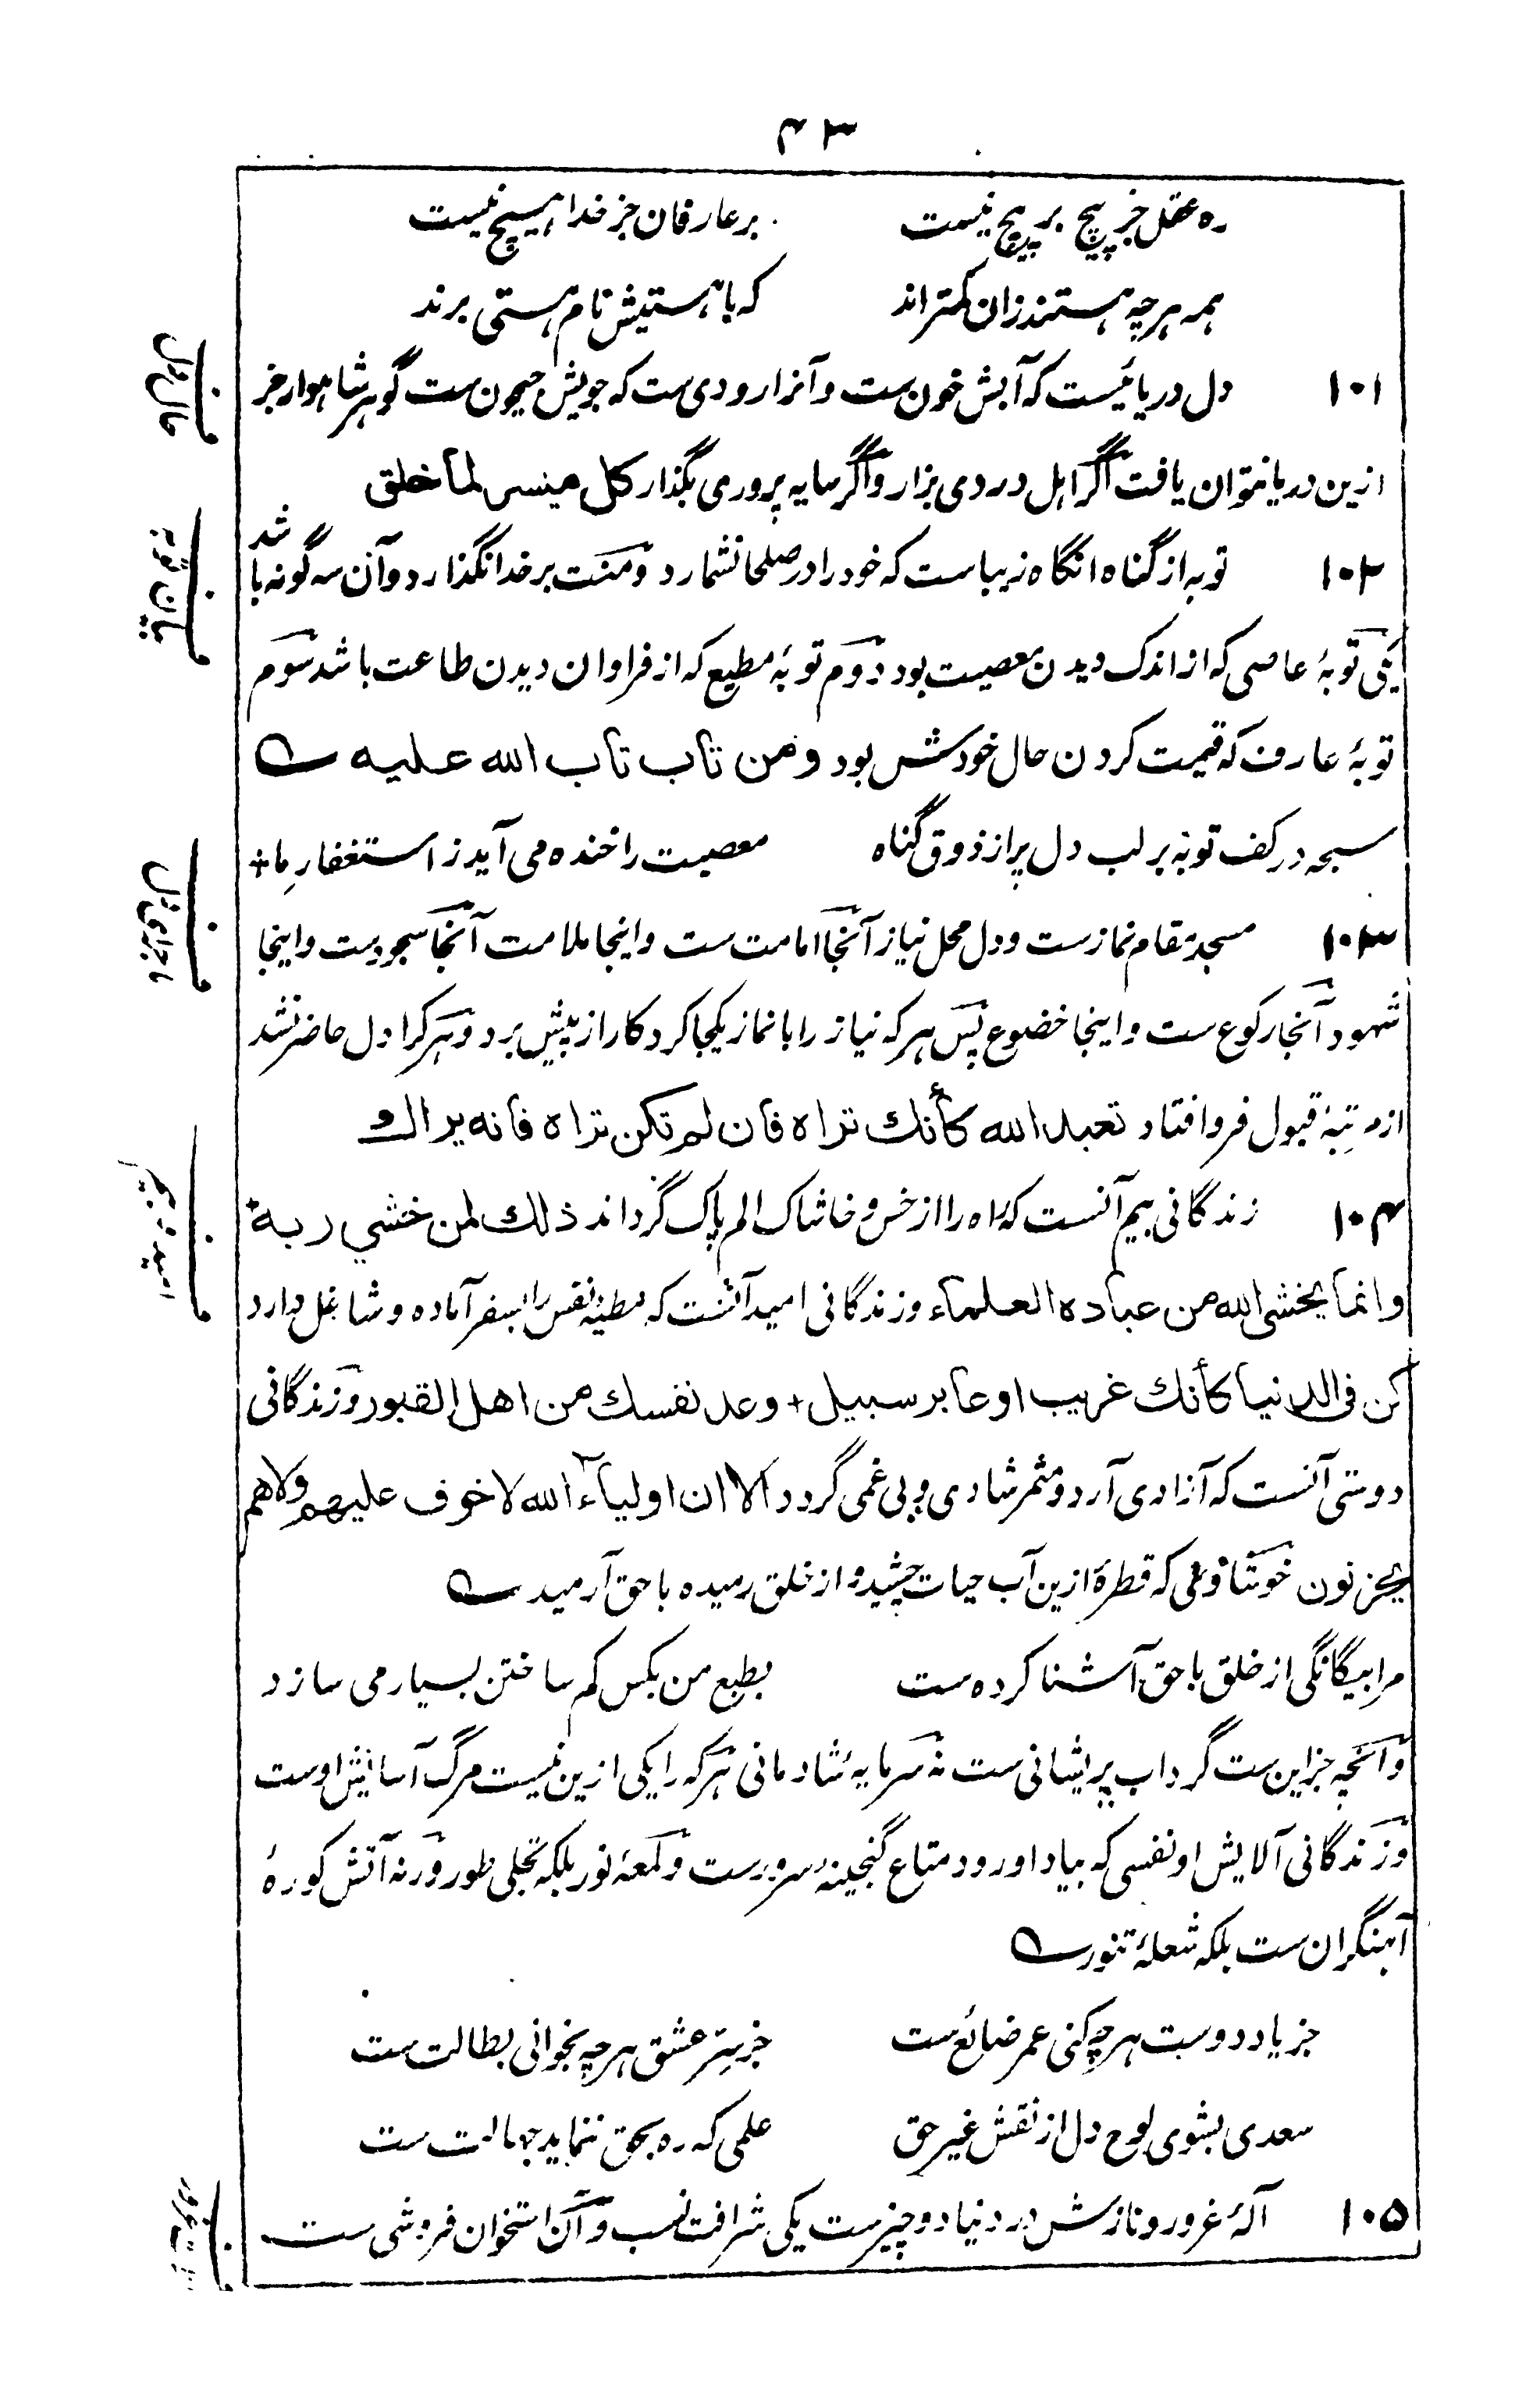 ۴۳
ره عقل جز پیچ بر پیچ نیست بر عارفان جز خدا هیچ نیست
همه هرچه هستند زان کمتر اند که با هستیش نام هستی برند
۱۰۱ دل دریائیست که آبش خون ست و آنرا رودی ست که جویش جیحون ست گوهر شاهوار جز
ازین دریا نتوان یافت اگر اهل دردی بزار و اگر مایه پروری بگذار کل میسر لما خلق
۱۰۲ توبه از گناه انگاه زیباست که خود را در صلحا نشمارد و منت بر خدا نگذارد و آن سه گونه باشد
یکی توبۀ عاصی که از اندک دیدن معصیت بود دوم توبۀ مطیع که از فراوان دیدن طاعت باشد سوم
توبۀ عارف که قیمت کردن حال خودش بود و من تاب تاب الله علیه
سبحه در کف توبه بر لب دل پر از ذوق گناه معصیت را خنده می آید ز استغفار ما
۱۰۳ مسجد مقام نمازست و دل محل نیاز آنجا امامت ست و اینجا ملامت آنجا سجودست و اینجا
شهود آنجا رکوع ست و اینجا خضوع پس هر که نیاز را با نماز یکجا کرد کار از پیش برد و هر کرا دل حاضر نشد
از مرتبۀ قبول فرو افتاد تعبد الله کأنك تراه فان لم تکن تراه فانه یراك
۱۰۴ زندگانی بیم آنست که راه را از خس و خاشاک الم پاک گرداند ذلك لمن خشي ربه
و انما یخشی الله من عباده العلماء و زندگانی امید آنست که مطیۀ نفس را بسفر آماده و شاغل دارد
کن فی الدنیا کأنك غریب او عابر سبیل + وعد نفسك من اهل القبور و زندگانی
دوستی آنست که آزادی آرد و مثمر شادی و بی غمی گردد الا ان اولیاء الله لا خوف علیهم ولا هم
یحزنون خوشا وقتی که قطرۀ ازین آب حیات چشید و از خلق رمیده با حق آرمید
مرا بیگانگی از خلق با حق آشنا کرده ست بطبع من بکس کم ساختن بسیار می سازد
و آنچه جز این ست گرداب پریشانی ست نه سرمایۀ شادمانی هر که را یکی ازین نیست مرگ آسایش اوست
و زندگانی آلایش او نفسی که بیاد او رود متاع گنجینۀ سرورست و لمعۀ نور بلکه تجلی طور ورنه آتش کورۀ
آهنگران ست بلکه شعلۀ تنور
جز یاد دوست هرچه کنی عمر ضائع ست جز سِر عشق هرچه بخوانی بطالت ست
سعدی بشوی لوح دل از نقش غیر حق علمی که ره بحق ننماید جهالت ست
۱۰۵ آلۀ غرور و نازش در دنیا دو چیزست یکی شرافت نسب و آن استخوان فروشی ست
ف حال دل
ف بیان توبه
ف ماجرای دل
ف امید و بیم